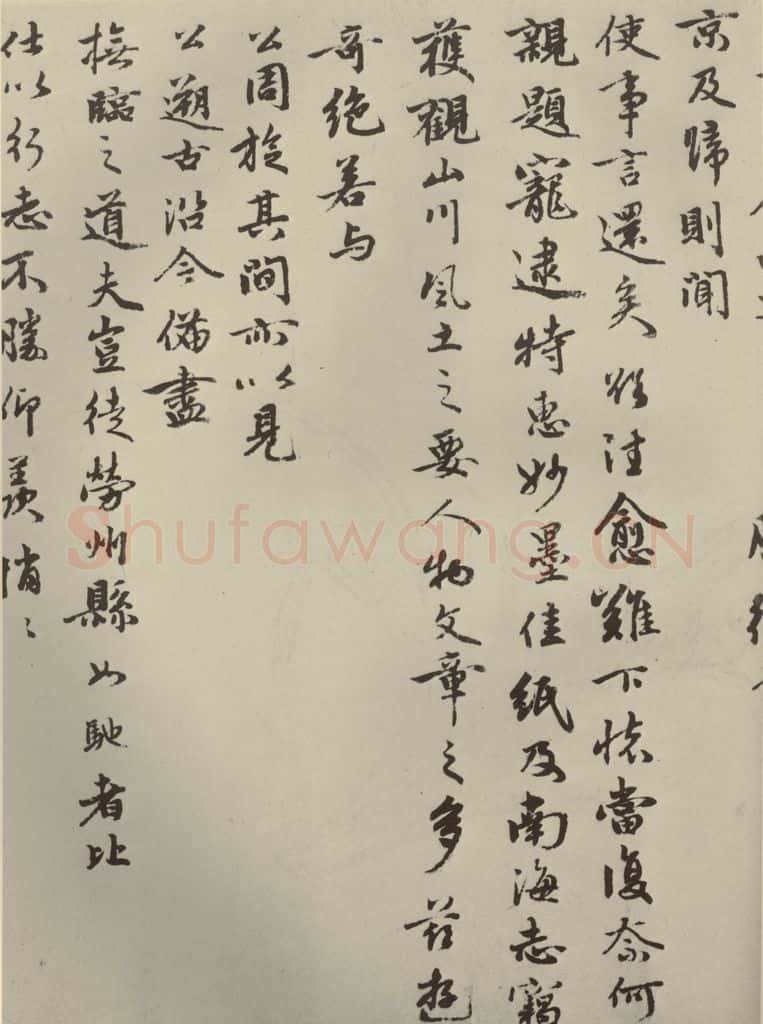 京及歸則聞
使事言還矣注愈難下懷當復奈何
親題寵逮特惠妙墨佳紙及南海志竊
獲觀山川風土之要人物文章之多茲遊
奇絶若与
公周旋其間以見
公遡古沿今備盡
撫臨之道夫豈徒勞州縣如馳者比
仕以行志不勝仰羡悄々
Shufawang.CN